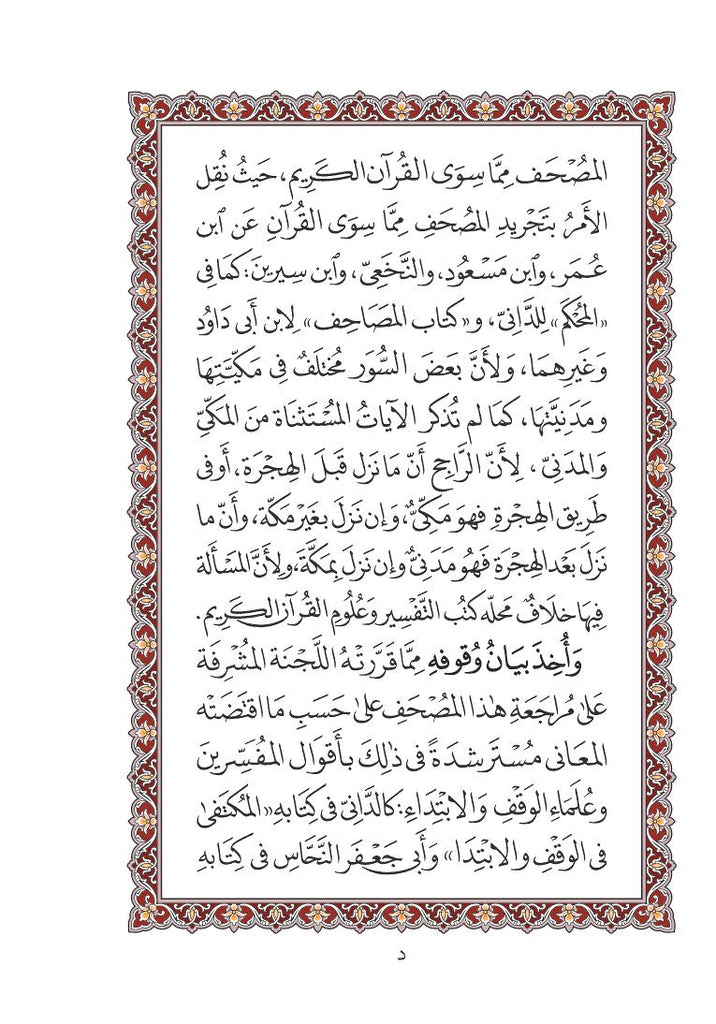 المصْحَف مِمَّا سِوَى القُرآن الكَرِيم، حَيثُ نُقِل
الأَمرُ بتَجْرِيدِ المصْحَفِ مِمَّا سِوَى القُرآنِ عَن ٱبن
عُمَر، وٱبن مَسْعُود، والنَّخَعِىّ، وٱبن سِيرينَ: كمَا فى
«المُحْكَم» لِلدَّانِىّ، و«كتاب المصَاحِف» لِابن أَبى دَاوُد
وَغَيرِهمَا، وَلأَنَّ بَعضَ السُّوَر مُختَلَفٌ فِى مَكِّيَّتِهَا
ومَدَنِيَّتِهَا، كمَا لم تُذكر الآيَاتُ المُسْتَثنَاة منَ المَكِّىِّ
وَالمدَنِىّ، لِأَنّ الرَّاجِح أَنّ مَا نَزل قَبلَ الهِجْرَة، أَو فى
طَرِيق الهِجْرةِ فهوَ مَكِّىٌّ، وَإن نَزلَ بغَيْرِ مَكّة، وأَنّ ما
نَزلَ بَعْد الهِجْرَة فَهُو مَدَنىٌّ وإن نَزلَ بمَكَّةَ، ولِأَنَّ المَسْأَلة
فِيهَا خلَافٌ مَحلّه كتُبُ التَّفْسِير وَعُلُومِ القُرآن الكَرِيم.
وَأُخِذَ بَيَانُ وُقوفِه مِمَّا قَرَّرَتْهُ اللَّجْنَة المُشْرِفَة
عَلَى مُرَاجَعَةِ هٰذا المصْحَف علىٰ حَسَبِ مَا اقتَضَتْه
المعَانى مُسْتَرشدَةً فى ذٰلِكَ بأَقوَال المفَسِّرينَ
وعُلَمَاءِ الوَقْفِ وَالابْتِدَاءِ: كالدَّانِىّ فى كِتَابهِ «المُكتَفىٰ
فى الوَقْفِ والابْتِدَا» وَأَبى جَعْفَر النَّحَّاس فى كِتَابهِ
د